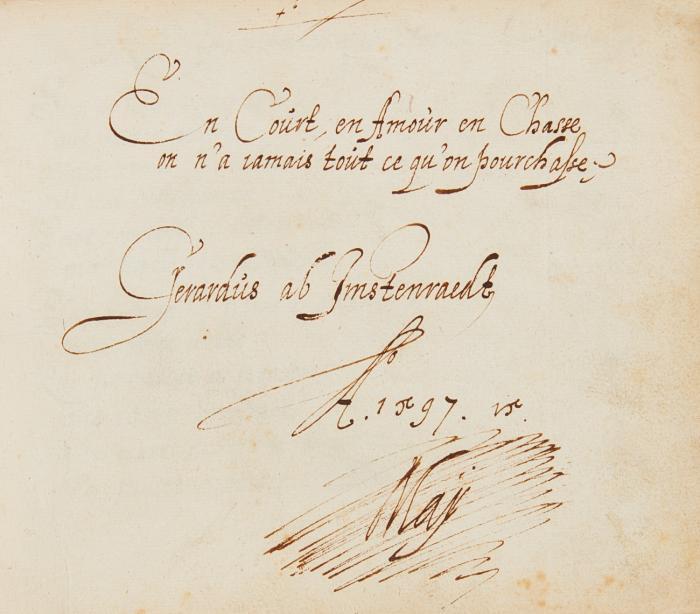 En Court, en Amour en Chasse
on n'a iamais tout ce qu'on pourchasse
Gerardus ab Imstenraedt
Ao. 1597. 15.
Maij